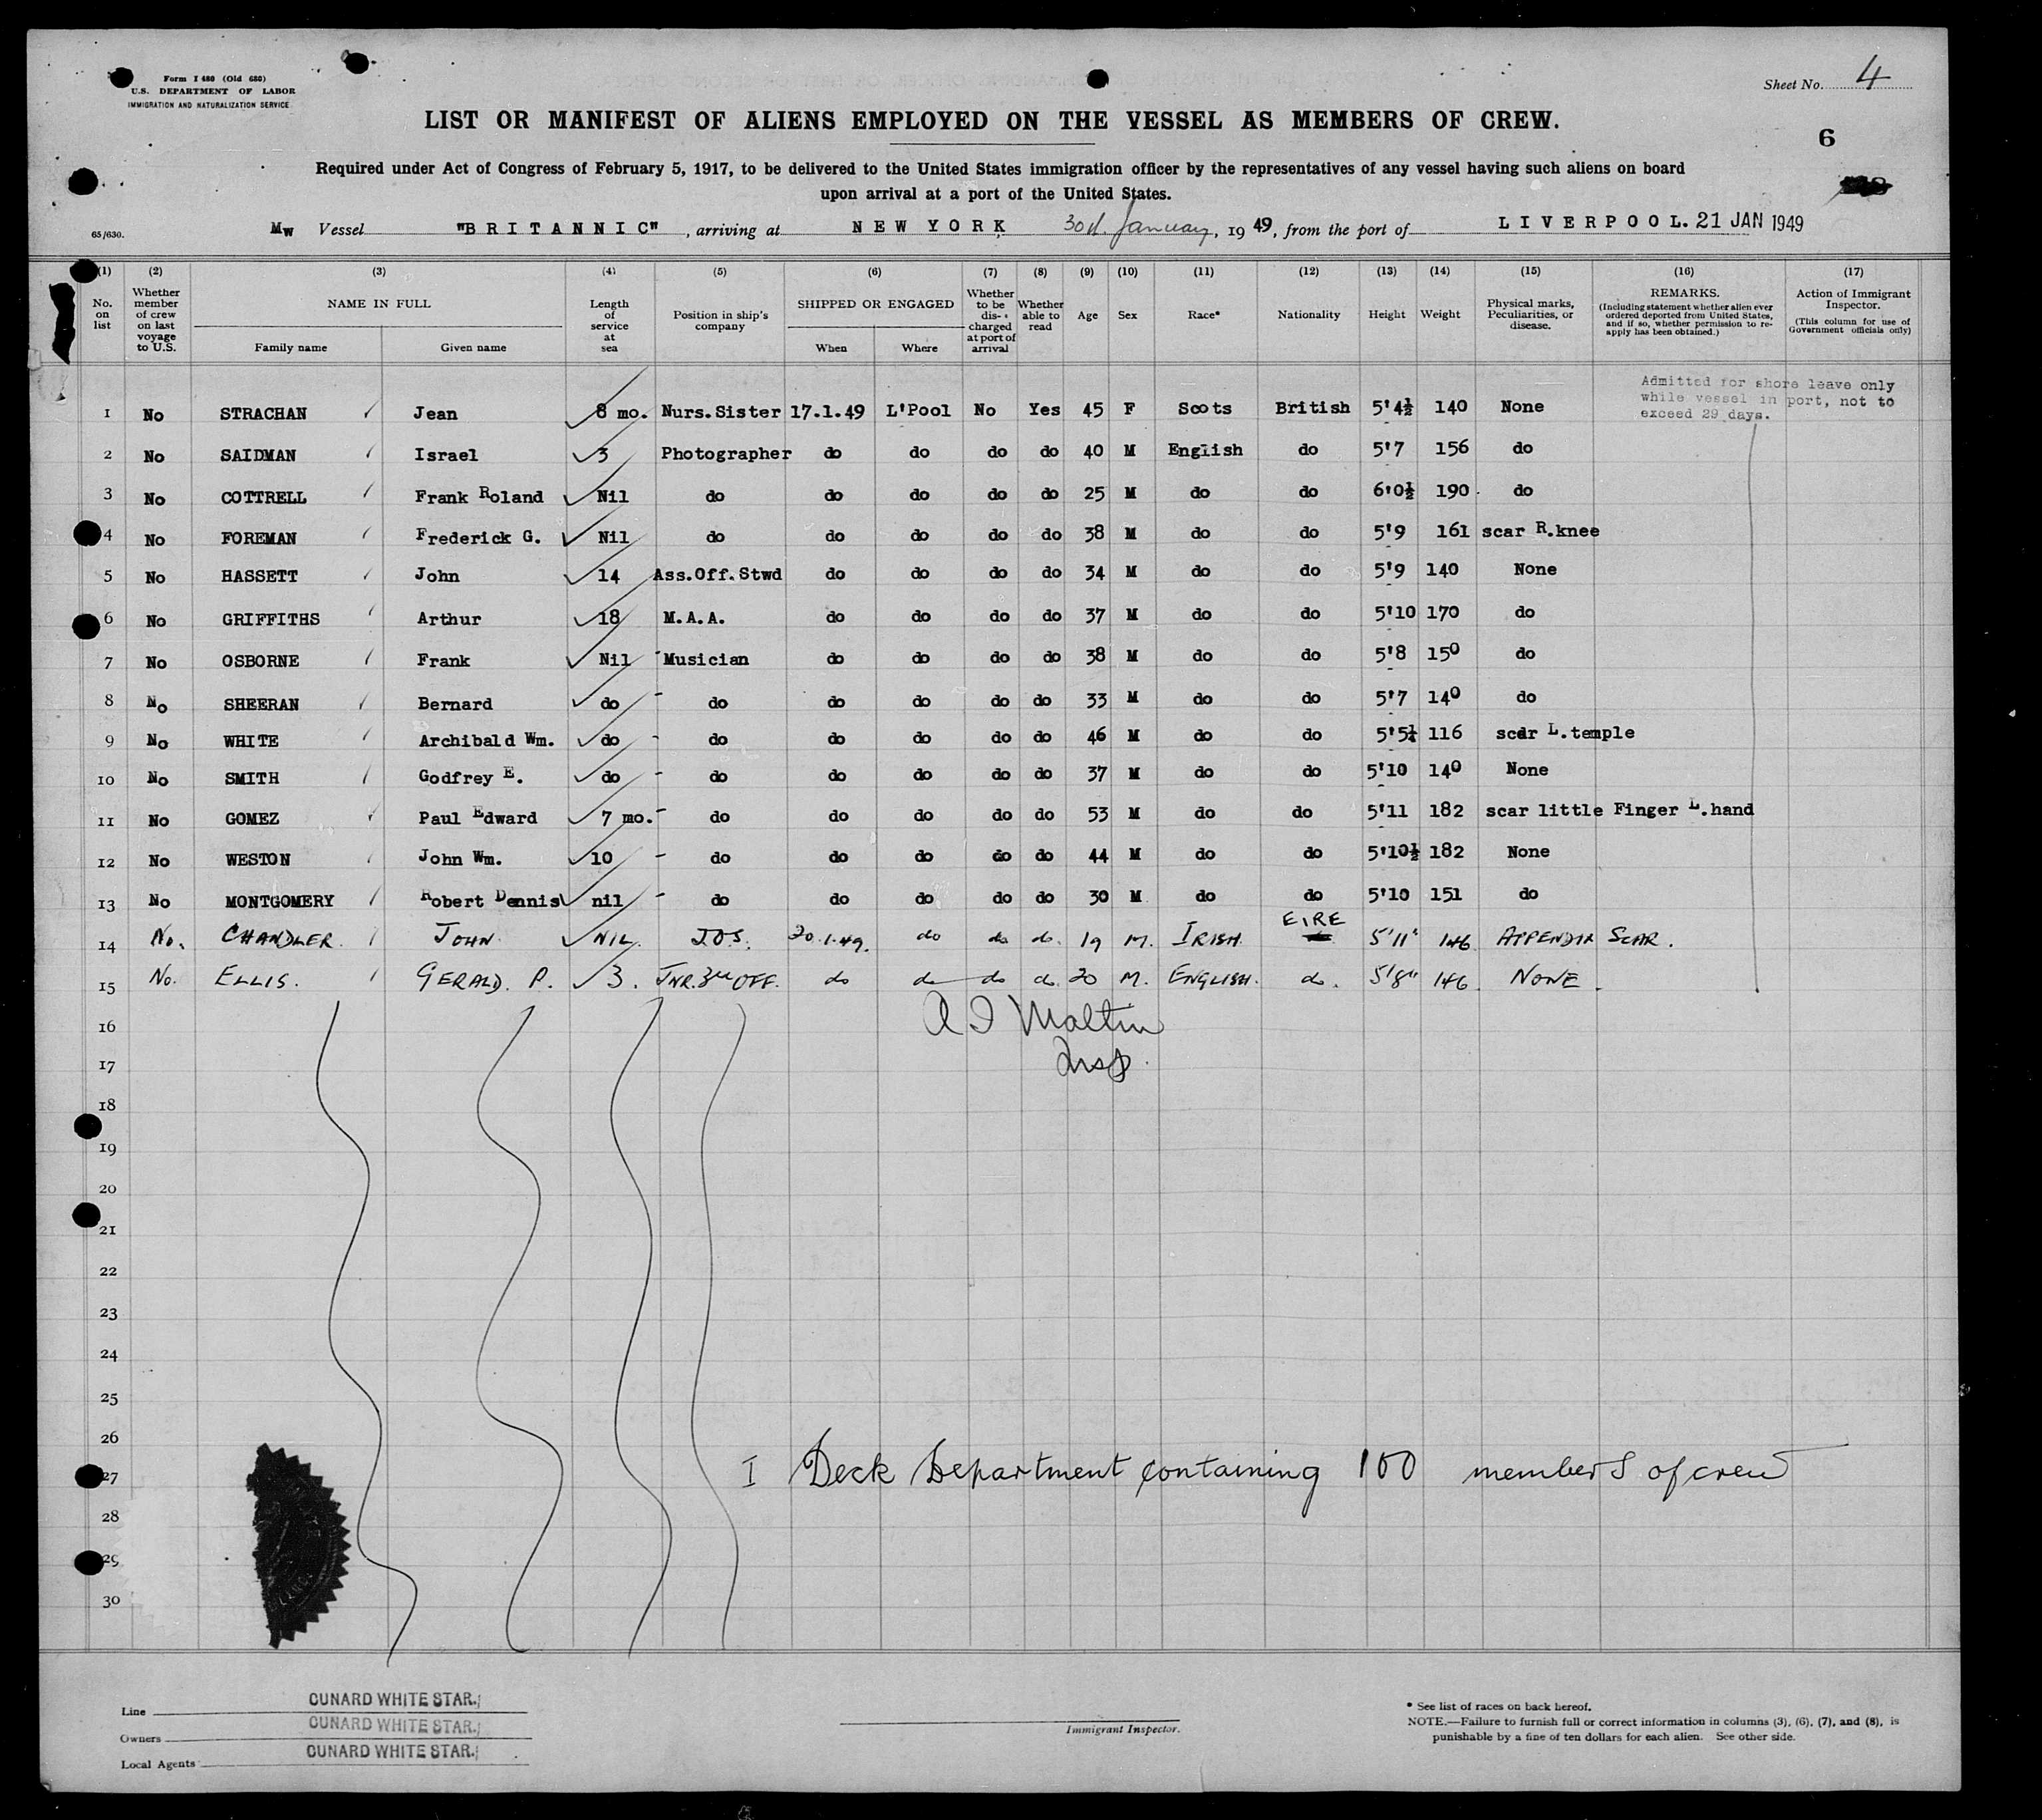 Form I 480 (Old 680)
U.S. DEPARTMENT OF LABOR
IMMIGRATION AND NATURALIZATION SERVICE
Sheet No. 4
LIST OR MANIFEST OF ALIENS EMPLOYED ON THE VESSEL AS MEMBERS OF CREW.
6
Required under Act of Congress of February 5, 1917, to be delivered to the United States immigration officer by the representatives of any vessel having such aliens on board
upon arrival at a port of the United States.
65/630. Mw Vessel "BRITANNIC", arriving at NEW YORK January, 1949, from the port of LIVERPOOL. 21 JAN 1949
(1) (2) (3) (4) (5) (6) (7) (8) (9) (10) (11) (12) (13) (14) (15) (16) (17)
No. on list
Whether member of crew on last voyage to U.S.
NAME IN FULL
Family name Given name
Length of service at sea
Position in ship's company
SHIPPED OR ENGAGED
When Where
Whether to be discharged at port of arrival
Whether able to read
Age
Sex
Race*
Nationality
Height
Weight
Physical marks, Peculiarities, or disease.
REMARKS.
(Including statement whether alien ever ordered deported from United States, and if so, whether permission to re-apply has been obtained.)
Action of Immigrant Inspector.
(This column for use of Government officials only)
Admitted for shore leave only
while vessel in port, not to
exceed 29 days.
1 No STRACHAN Jean 8 mo. Nurs.Sister 17.1.49 L'Pool No Yes 45 F Scots British 5'4½ 140 None
2 No SAIDMAN Israel 3 Photographer do do do do 40 M English do 5'7 156 do
3 No COTTRELL Frank Roland Nil do do do do do 25 M do do 6'0½ 190 do
4 No FOREMAN Frederick G. Nil do do do do do 38 M do do 5'9 161 scar R.knee
5 No HASSETT John 14 Ass.Off.Stwd do do do do 34 M do do 5'9 140 None
6 No GRIFFITHS Arthur 18 M.A.A. do do do do 37 M do do 5'10 170 do
7 No OSBORNE Frank Nil Musician do do do do 38 M do do 5'8 150 do
8 No SHEERAN Bernard do do do do do do 33 M do do 5'7 140 do
9 No WHITE Archibald Wm. do do do do do do 46 M do do 5'5¼ 116 scar L.temple
10 No SMITH Godfrey E. do do do do do do 37 M do do 5'10 140 None
11 No GOMEZ Paul Edward 7 mo. do do do do do 53 M do do 5'11 182 scar little Finger L.hand
12 No WESTON John Wm. 10 do do do do do 44 M do do 5'10½ 182 None
13 No MONTGOMERY Robert Dennis nil do do do do do 30 M do do 5'10 151 do
14 No. CHANDLER. JOHN NIL. J.O.S. 20.1.49. do do do. 19 M. IRISH. EIRE 5'11" 146 APPENDIX SCAR.
15 No. ELLIS. GERALD. P. 3. JNR.3rd OFF. do do do do. 20 M. ENGLISH. do. 5'8" 146 NONE.
16
17 Insp.
18
19
20
21
22
23
24
25
26
27 I Deck Department containing 100 members of crew
28
29
30
Line CUNARD WHITE STAR.
Owners CUNARD WHITE STAR.
Local Agents CUNARD WHITE STAR.
Immigrant Inspector.
* See list of races on back hereof.
NOTE.—Failure to furnish full or correct information in columns (3), (6), (7), and (8), is
punishable by a fine of ten dollars for each alien. See other side.